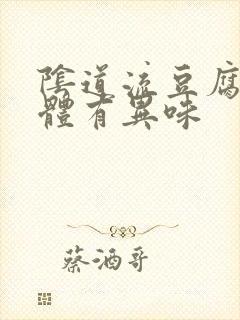 陰道流豆腐
體有異味
蔡酒哥